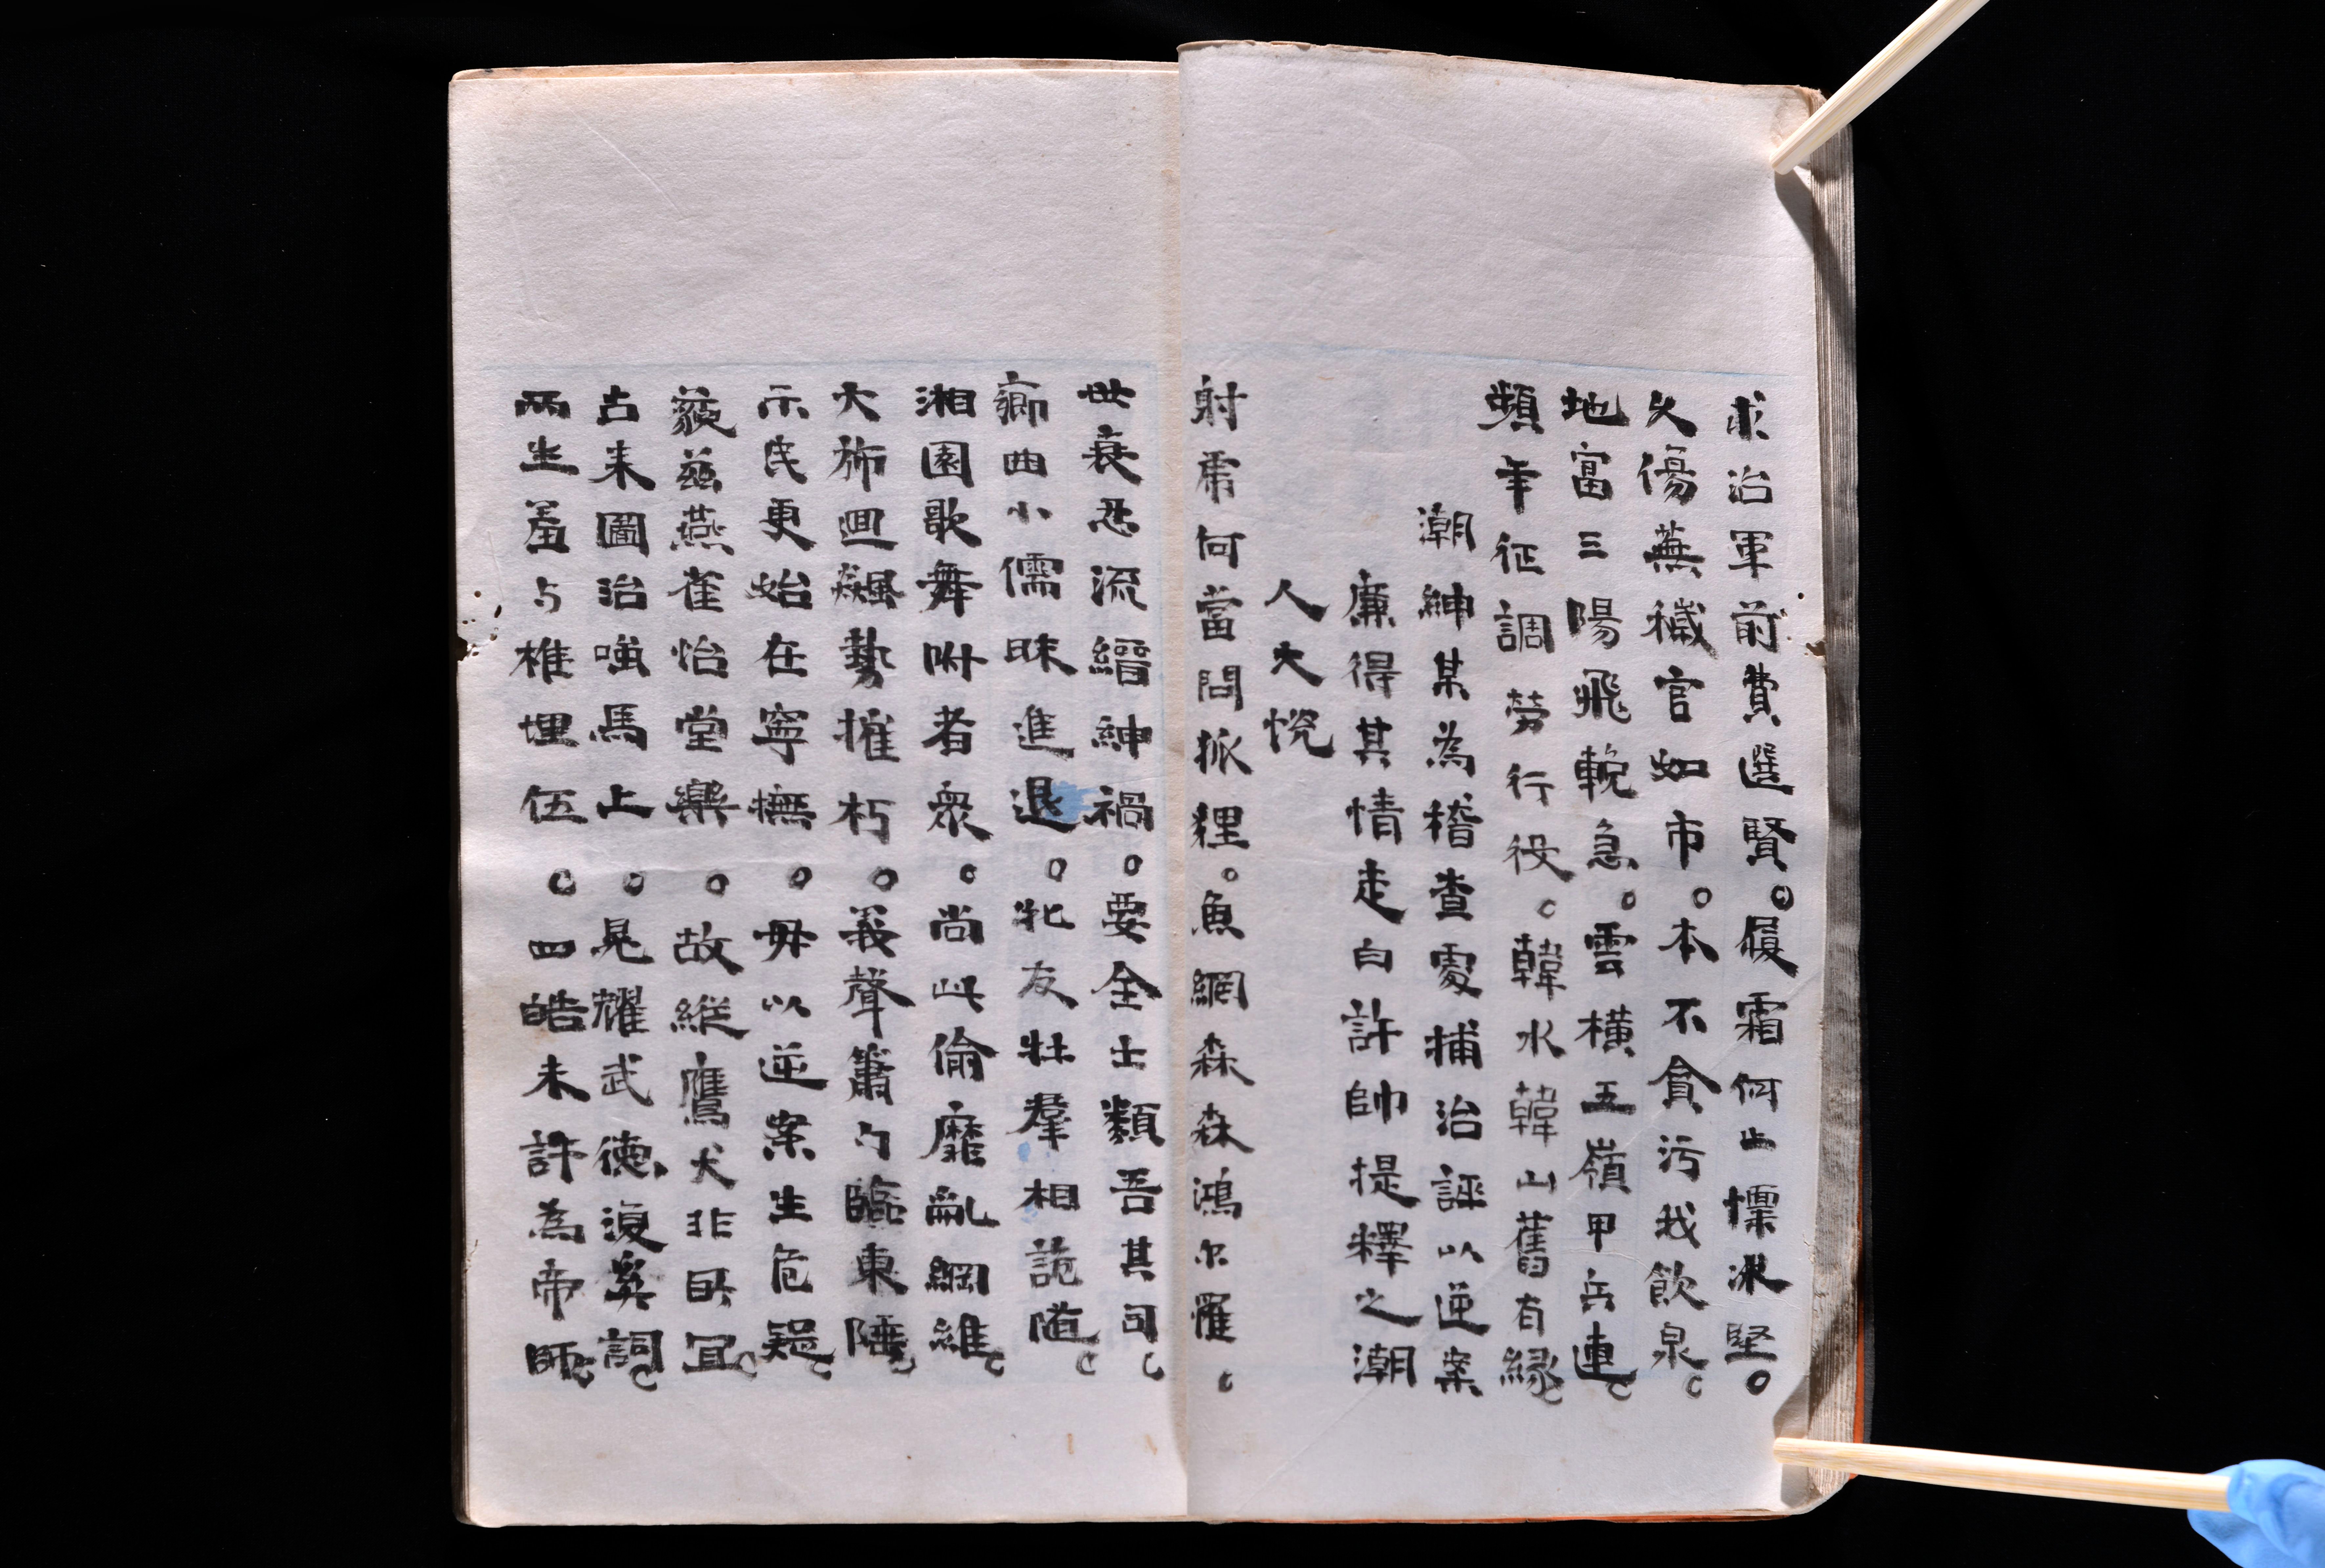 求治軍前費選賢。履霜何止懍冰堅。
久傷蕪穢官如市。本不貪污我飲泉。
地富三陽飛輓急。雲橫五嶺甲兵連。
頻年征調勞行役。韓水韓山舊有緣。
潮紳某為稽查處捕治誣以逆案
廉得其情走白許帥提釋之潮
人大悅
射虎何當問狐狸。魚網森森鴻尔罹。
世衰忍流縉紳禍。要全士類吾其司。
鄉曲小儒昧進退。牝友牡羣相詭隨。
湘園歌舞咻者衆。尚此偷靡亂綱維。
大旆迴飆勢摧朽。義聲簫勺臨東陲。
示民更始在寧撫。毋以逆案生危疑。
藐茲燕雀怡堂樂。故縱鷹犬非時宜。
古來圖治嗤馬上。晃耀武德復奚詞。
兩生羞与椎埋伍。四皓未許為帝師。